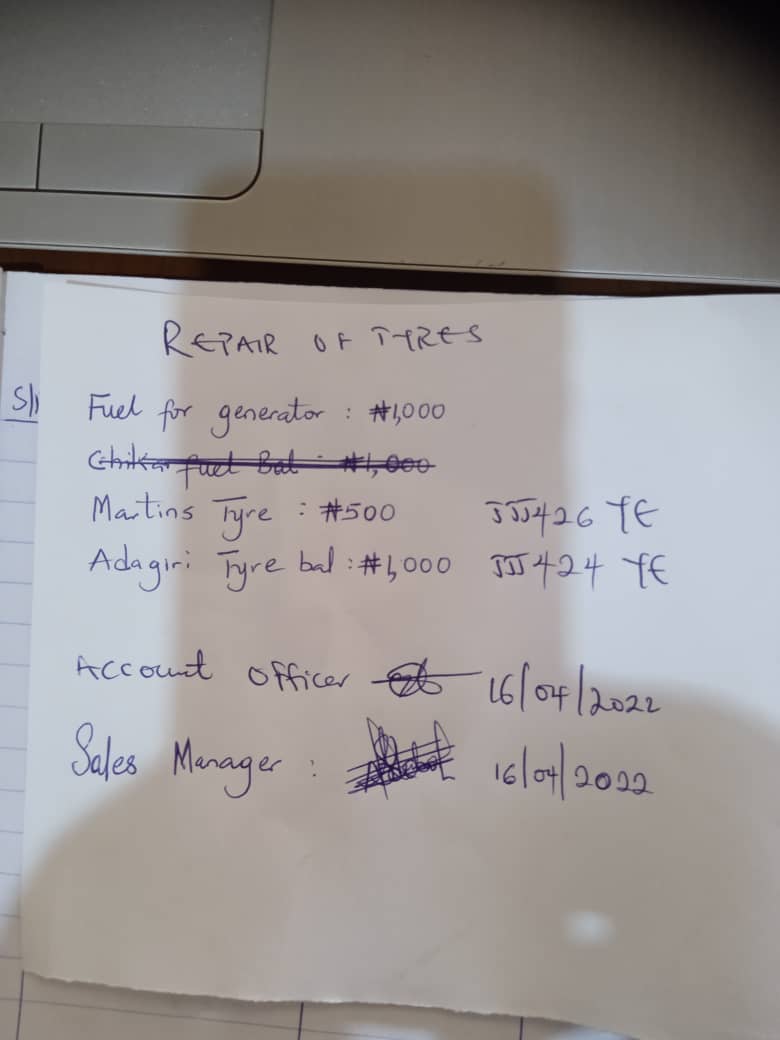 REPAIR OF TYRES
S/
Fuel for generator : ₦1,000
Chika fuel Bal : ₦1,000
Martins Tyre : ₦500 JJJ426 YE
Adagiri Tyre bal : ₦1,000 JJJ424 YE
Account officer 16/04/2022
Sales Manager : 16/04/2022